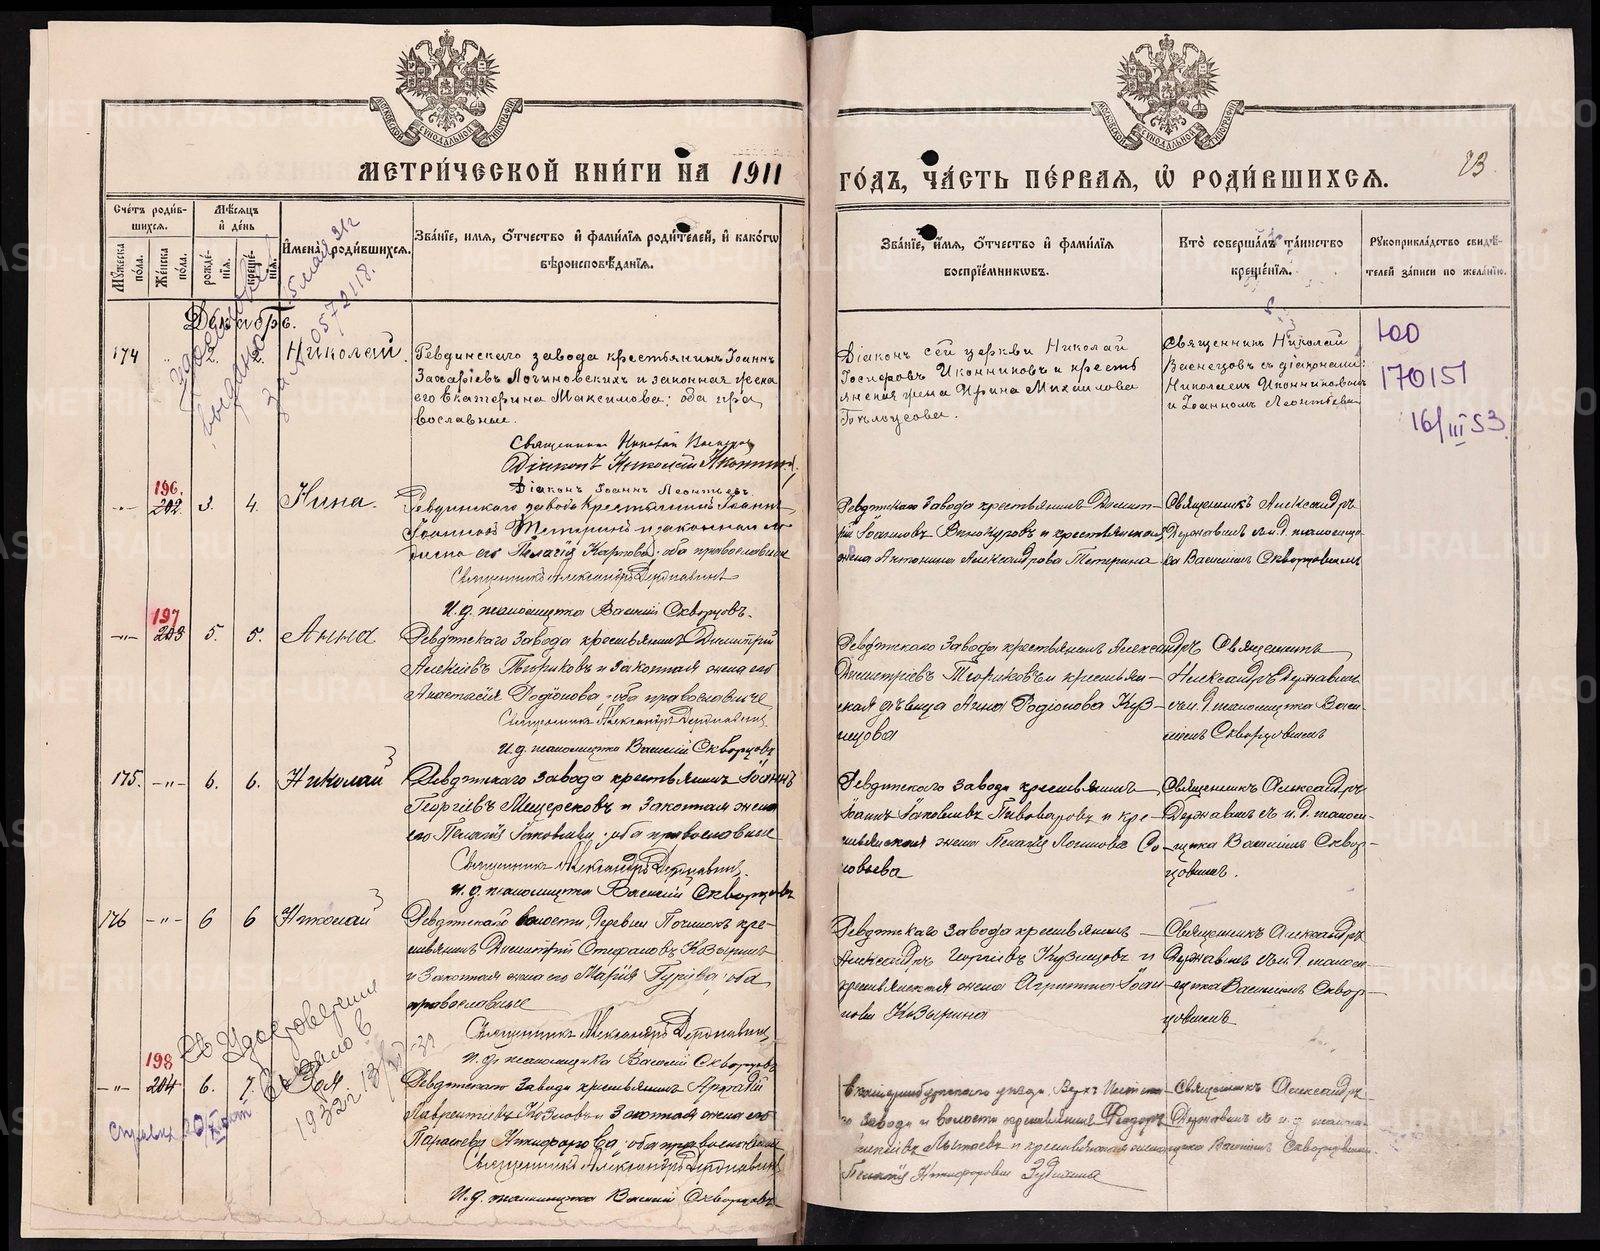 МЕТРИ́ЧЕСКОЙ КНИ́ГИ НА 1911
ГО́ДЪ, ЧА́СТЬ ПЕ́РВАЯ, Ѡ҆ РОДИ́ВШИХСЯ.
23.
Сче́тъ роди́в-
шихся.
Мꙋ́жеска по́ла.
Же́нска по́ла.
Мѣ́сяцъ
и҆ де́нь
рожде́-
нїя.
креще́-
нїя.
И҆мена̀ роди́вшихся.
Зва́нїе, и҆мя, ѻ҆́тчество и҆ фами́лїя роди́телей, и҆ како́гѡ
вѣроисповѣ́данїя.
Зва́нїе, и҆́мя, ѻ҆́тчество и҆ фами́лїя
воспрїе́мникѡвъ.
Кто̀ соверша́лъ та́инство
креще́нїя.
Рꙋкоприкла́дство свидѣ́-
телей за́писи по жела́нїю.
Декабрь.
174
2.
Николай.
Ревдинскаго завода крестьянинъ Іоаннъ
Захаріевъ Логиновскихъ и законная жена
его Екатерина Максимова; оба пра
вославные.
Священникъ Николай Васнецовъ
Діаконъ Николай Иконник
Діаконъ Іоаннъ Леонтьевъ
Діаконъ сей церкви Николай
Іосифовъ Иконниковъ и кресть
янская жена Ирина Михаилова
Бѣлоусова.
Священникъ Николай
Васнецовъ съ діаконами:
Николаемъ Иконниковымъ
и Іоанномъ Леонтьевымъ
100
170151
16/III 53.
196.
202
3.
4.
Нина.
Ревдинскаго завода крестьянинъ Іоаннъ
Іоанновъ Тетеринъ и законная же-
на его Пелагія Карпова; оба православные
Священникъ Александръ Державинъ
И. д. псаломщика Василій Скворцовъ.
Ревдинскаго Завода крестьянинъ Димит-
рій Іоанновъ Винокуровъ и крестьянская
жена Антонина Александрова Тетерина
Священникъ Александръ
Державинъ съ и. д. псаломщи-
ка Василіемъ Скворцовымъ
197
203
5.
5.
Анна
Ревдинскаго Завода крестьянинъ Димитрій
Алексіевъ Пьянковъ и законная жена его
Анастасія Родіонова, оба православные
Священникъ Александръ Державинъ
И. д. псаломщика Василій Скворцовъ
Ревдинскаго Завода крестьянинъ Александръ
Димитріевъ и крестьян-
ская дѣвица Анна Родіонова Куз-
нецова
Священникъ
Александръ Державинъ
съ и. д. псаломщика Васи-
ліемъ Скворцовымъ
175.
6.
6.
Николай
Ревдинскаго завода крестьянинъ Іоаннъ
Георгіевъ Мещеряковъ и законная жена
его Пелагія Іаковлева, оба православные
Священникъ Александръ Державинъ
И. д. псаломщика Василій Скворцовъ
Ревдинскаго Завода крестьянинъ
Іоаннъ Іаковлевъ Пивоваровъ и кре-
стьянская жена Пелагія Логинова Со-
ловьева
Священникъ Александръ
Державинъ съ и. д. псалом-
щика Василіемъ Сквор-
цовымъ.
176
6
6
Николай
Ревдинской волости, Деревни Починокъ кре-
стьянинъ Димитрій Стефановъ Козыринъ
и Законная жена его Марія Гурьева, оба
православные
Священникъ Александръ Державинъ
И. д. псаломщика Василій Скворцовъ
Ревдинскаго Завода крестьянинъ
Александръ Георгіевъ Кузнецовъ и
крестьянская жена Агриппина Іоан-
нова Козырина
Священникъ Александръ
Державинъ съ и. д. псалом-
щика Василіемъ Сквор-
цовымъ
198
204
6.
7.
Зоя
Ревдинскаго Завода крестьянинъ Аркадій
Лаврентьевъ Козловъ и Законная жена его
Параскева Никифорова, оба православные
Священникъ Александръ Державинъ
И. д. псаломщика Василій Скворцовъ
Екатеринбургскаго уѣзда, Верхъ-Исетска-
го Завода и волости крестьянинъ Ѳеодоръ
и крестьянская жена
Пелагія Никифорова
Священникъ Александръ
Державинъ съ и. д. псалом-
щика Василіемъ Скворцовымъ.
1932 г.